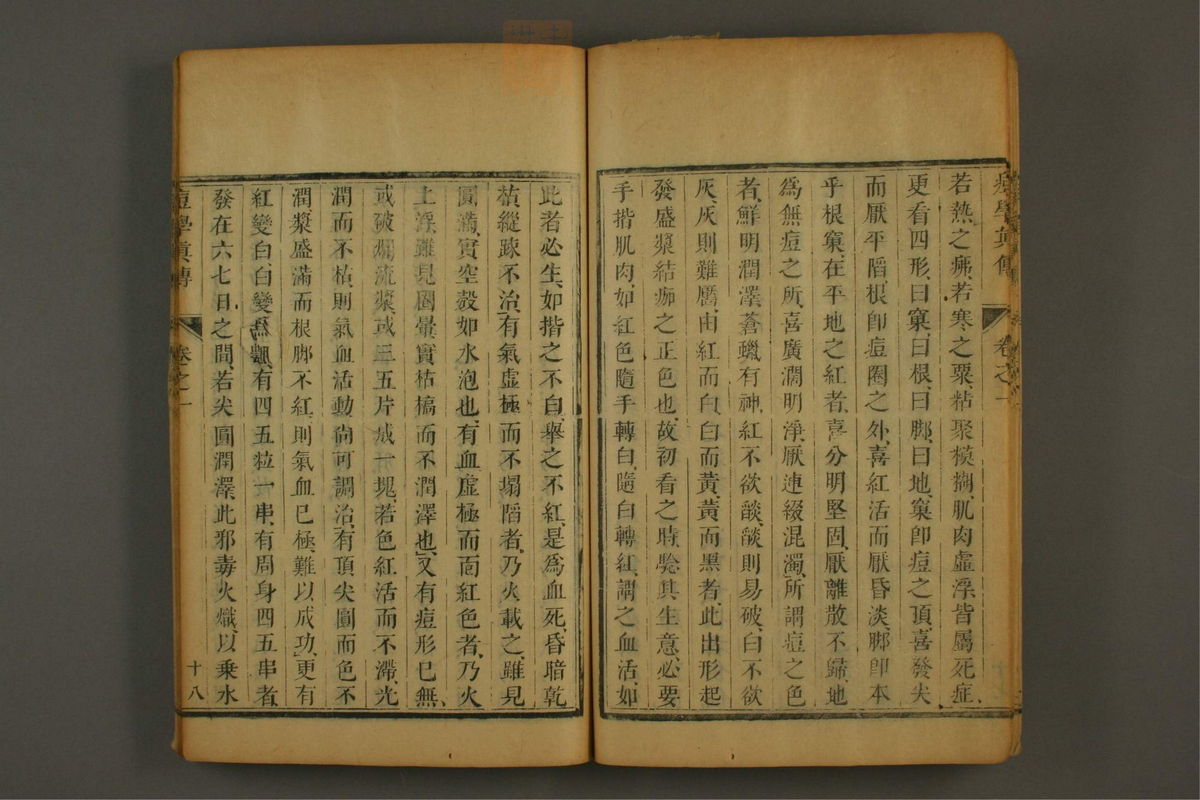 痘學眞傳 卷之一
若熱之疿、若寒之粟、粘聚模搠、肌肉虛浮、皆屬死症、
更看四形、曰窠、曰根、曰脚、曰地、窠卽痘之頂、喜發尖
而厭平䧟、根卽痘圈之外、喜紅活而厭昏淡、脚卽本
乎根窠、在平地之紅者、喜分明堅固、厭離散不歸、地
爲無痘之所、喜廣濶明淨、厭連綴混濁、所謂痘之色
者、鮮明潤澤、蒼蠟有神、紅不欲𦦨、𦦨則易破、白不欲
灰、灰則難靨、由紅而白、白而黃、黃而黑者、此出形起
發盛漿結痂之正色也、故初看之時、騐其生意、必要
手揩肌肉、如紅色隨手轉白、隨白轉紅、謂之血活、如
此者必生、如揩之不白、舉之不紅、是爲血死、昏暗乾
枯、縱疎不治、有氣虛極而不塌䧟者、乃火載之、雖見
圓滿、實空殼如水泡也、有血虛極而面紅色者、乃火
上浮、雖見圈暈、實枯槁而不潤澤也、又有痘形已無、
或破爛流漿、或三五片成一塊、若色紅活而不滯、光
潤而不枯、則氣血活動、尙可調治、有頂尖圓而色不
潤、漿盛滿而根脚不紅、則氣血已極、難以成功、更有
紅變白、白變爲黑、有四五粒一串、有周身四五串者、
發在六七日之間、若尖圓潤澤、此邪毒火熾、以乘水
痘學眞傳 卷之一 十八